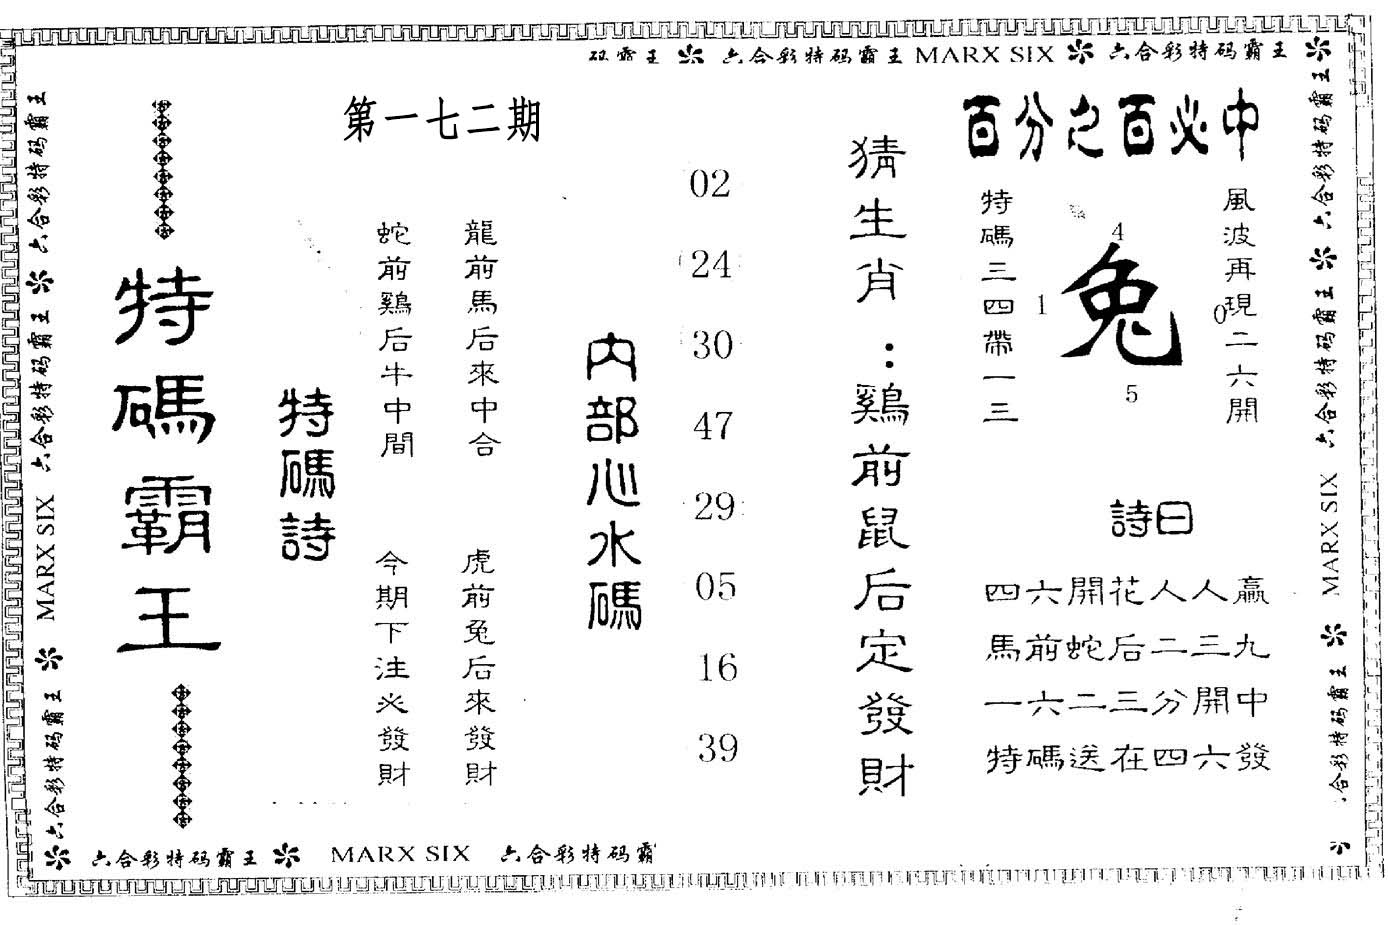 码霸王 六合彩特码霸王 MARX SIX 六合彩特码霸王
六合彩特码霸王 六合彩特码霸王 MARX SIX 六合彩特码霸王
六合彩特码霸王 六合彩特码霸王 MARX SIX 六合彩特码霸王
六合彩特码霸王 MARX SIX 六合彩特码霸
百分之百必中
風波再現二六開
4
1
兔
0
5
特碼三四帶一三
詩曰
四六開花人人贏
馬前蛇后二三九
一六二三分開中
特碼送在四六發
猜生肖：鷄前鼠后定發財
02
24
30
47
29
05
16
39
内部心水碼
第一七二期
龍前馬后來中合
虎前兔后來發財
蛇前鷄后牛中間
今期下注必發財
特碼詩
特碼霸王